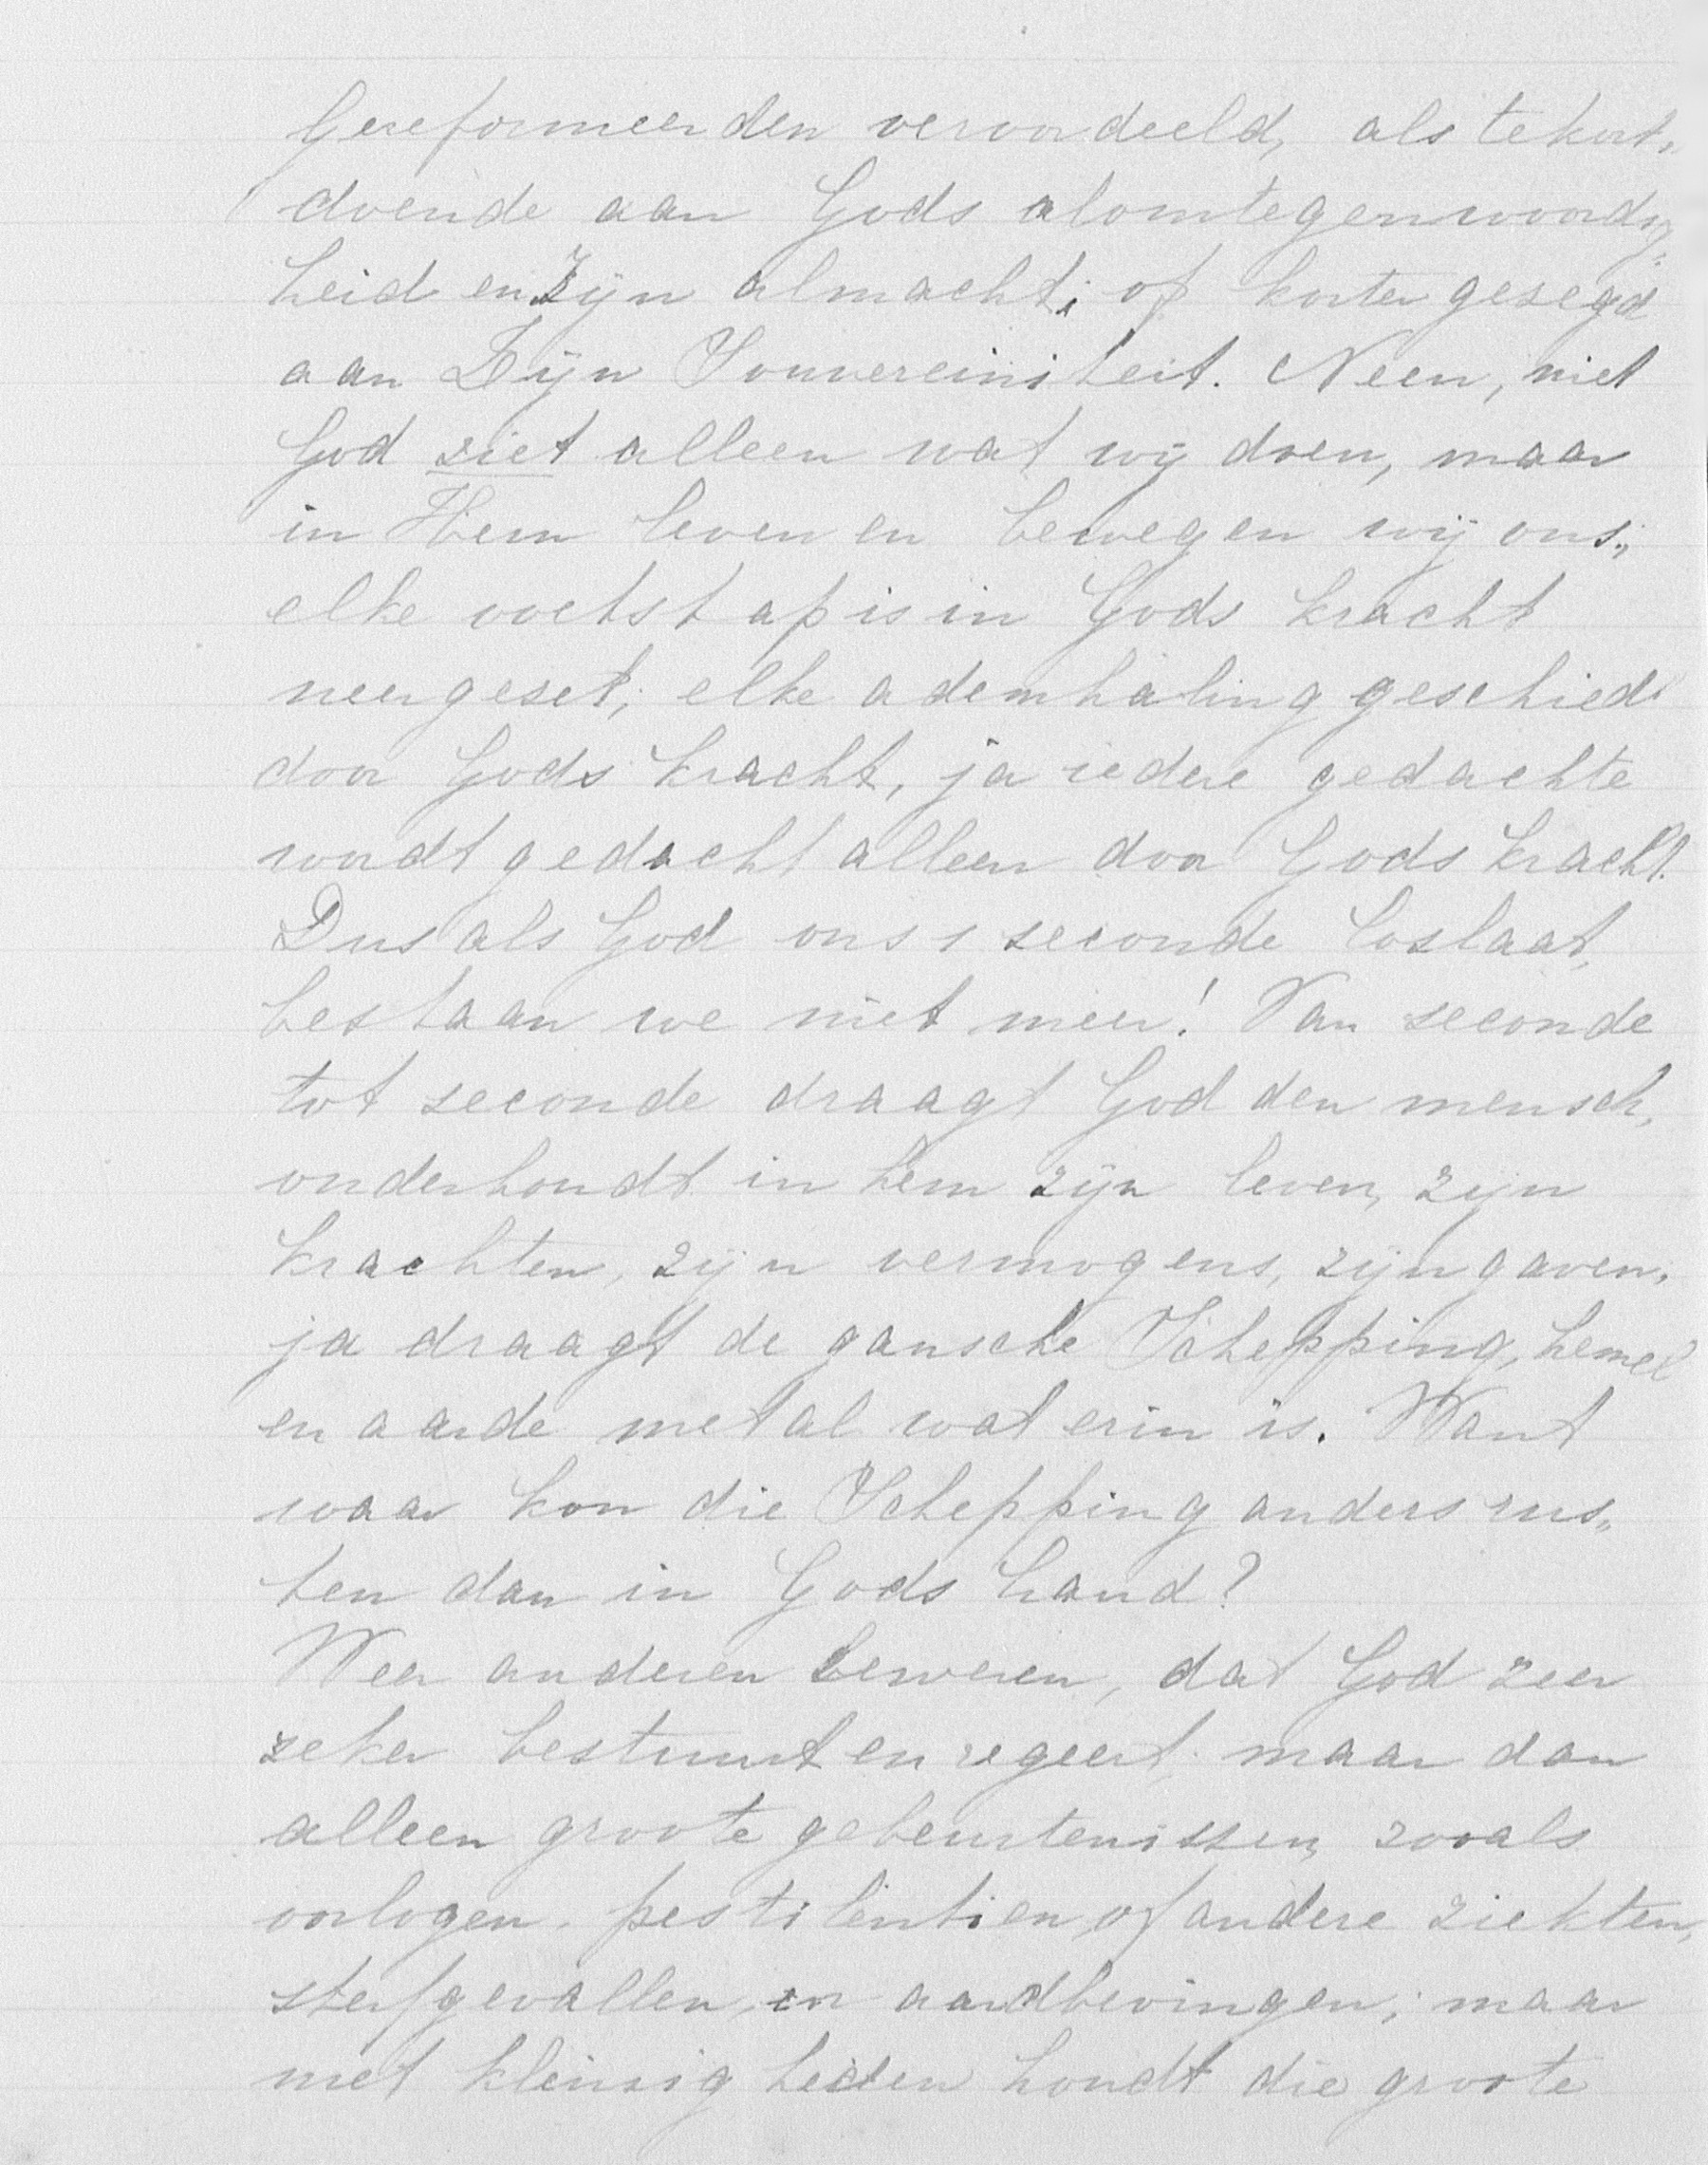 Gereformeerden veroordeeld, als tekort„
doende aan Gods alomtegenwoordig„
heid en Zijn almacht; of korter gezegd
aan Zijn Souvereiniteit. Neen, niet
God ziet alleen wat wij doen, maar
in Hem leven en bewegen wij ons;
elke voetstap is in Gods kracht
neergezet; elke ademhaling geschiedt
door Gods kracht, ja iedere gedachte
wordt gedacht alleen door Gods kracht.
Dus als God ons 1 seconde loslaat,
bestaan we niet meer! Van seconde
tot seconde draagt God den mensch,
onderhoudt in hem zijn leven, zijn
krachten, zijn vermogens, zijn gaven,
ja draagt de gansche Schepping, hemel
en aarde met al wat erin is. Want
waar kon die Schepping anders rus„
ten dan in Gods hand?
Weer anderen beweren, dat God zeer
zeker bestuurt en regeert, maar dan
alleen groote gebeurtenissen, zooals
oorlogen, pestilentien, of andere ziekten,
sterfgevallen, en aardbevingen; maar
met kleinigheden houdt die groote